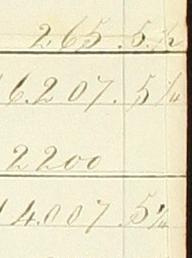 265.5.½
16.207.5¼
2200
14.007.5¼